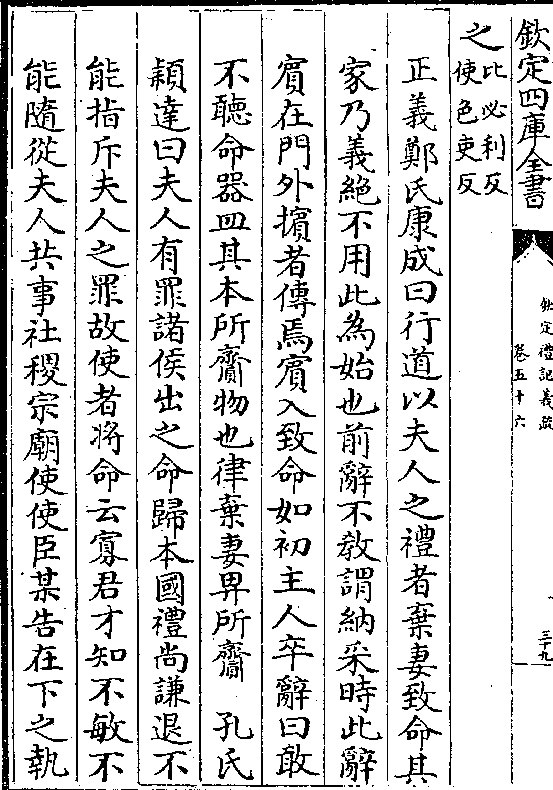 欽定四庫全書
欽定禮記義疏
卷五十六
三十九
之比必利反
使色吏反
正義鄭氏康成曰行道以夫人之禮者棄妻致命其
家乃義絶不用此為始也前辭不敎謂納采時此辭
賔在門外擯者傳焉賔入致命如初主人卒辭曰敢
不聽命器皿其本所齎物也律棄妻畀所齎 孔氏
穎達曰夫人有罪諸侯出之命歸本國禮尚謙退不
能指斥夫人之罪故使者將命云寡君才知不敏不
能隨從夫人共事社稷宗廟使使臣某告在下之執